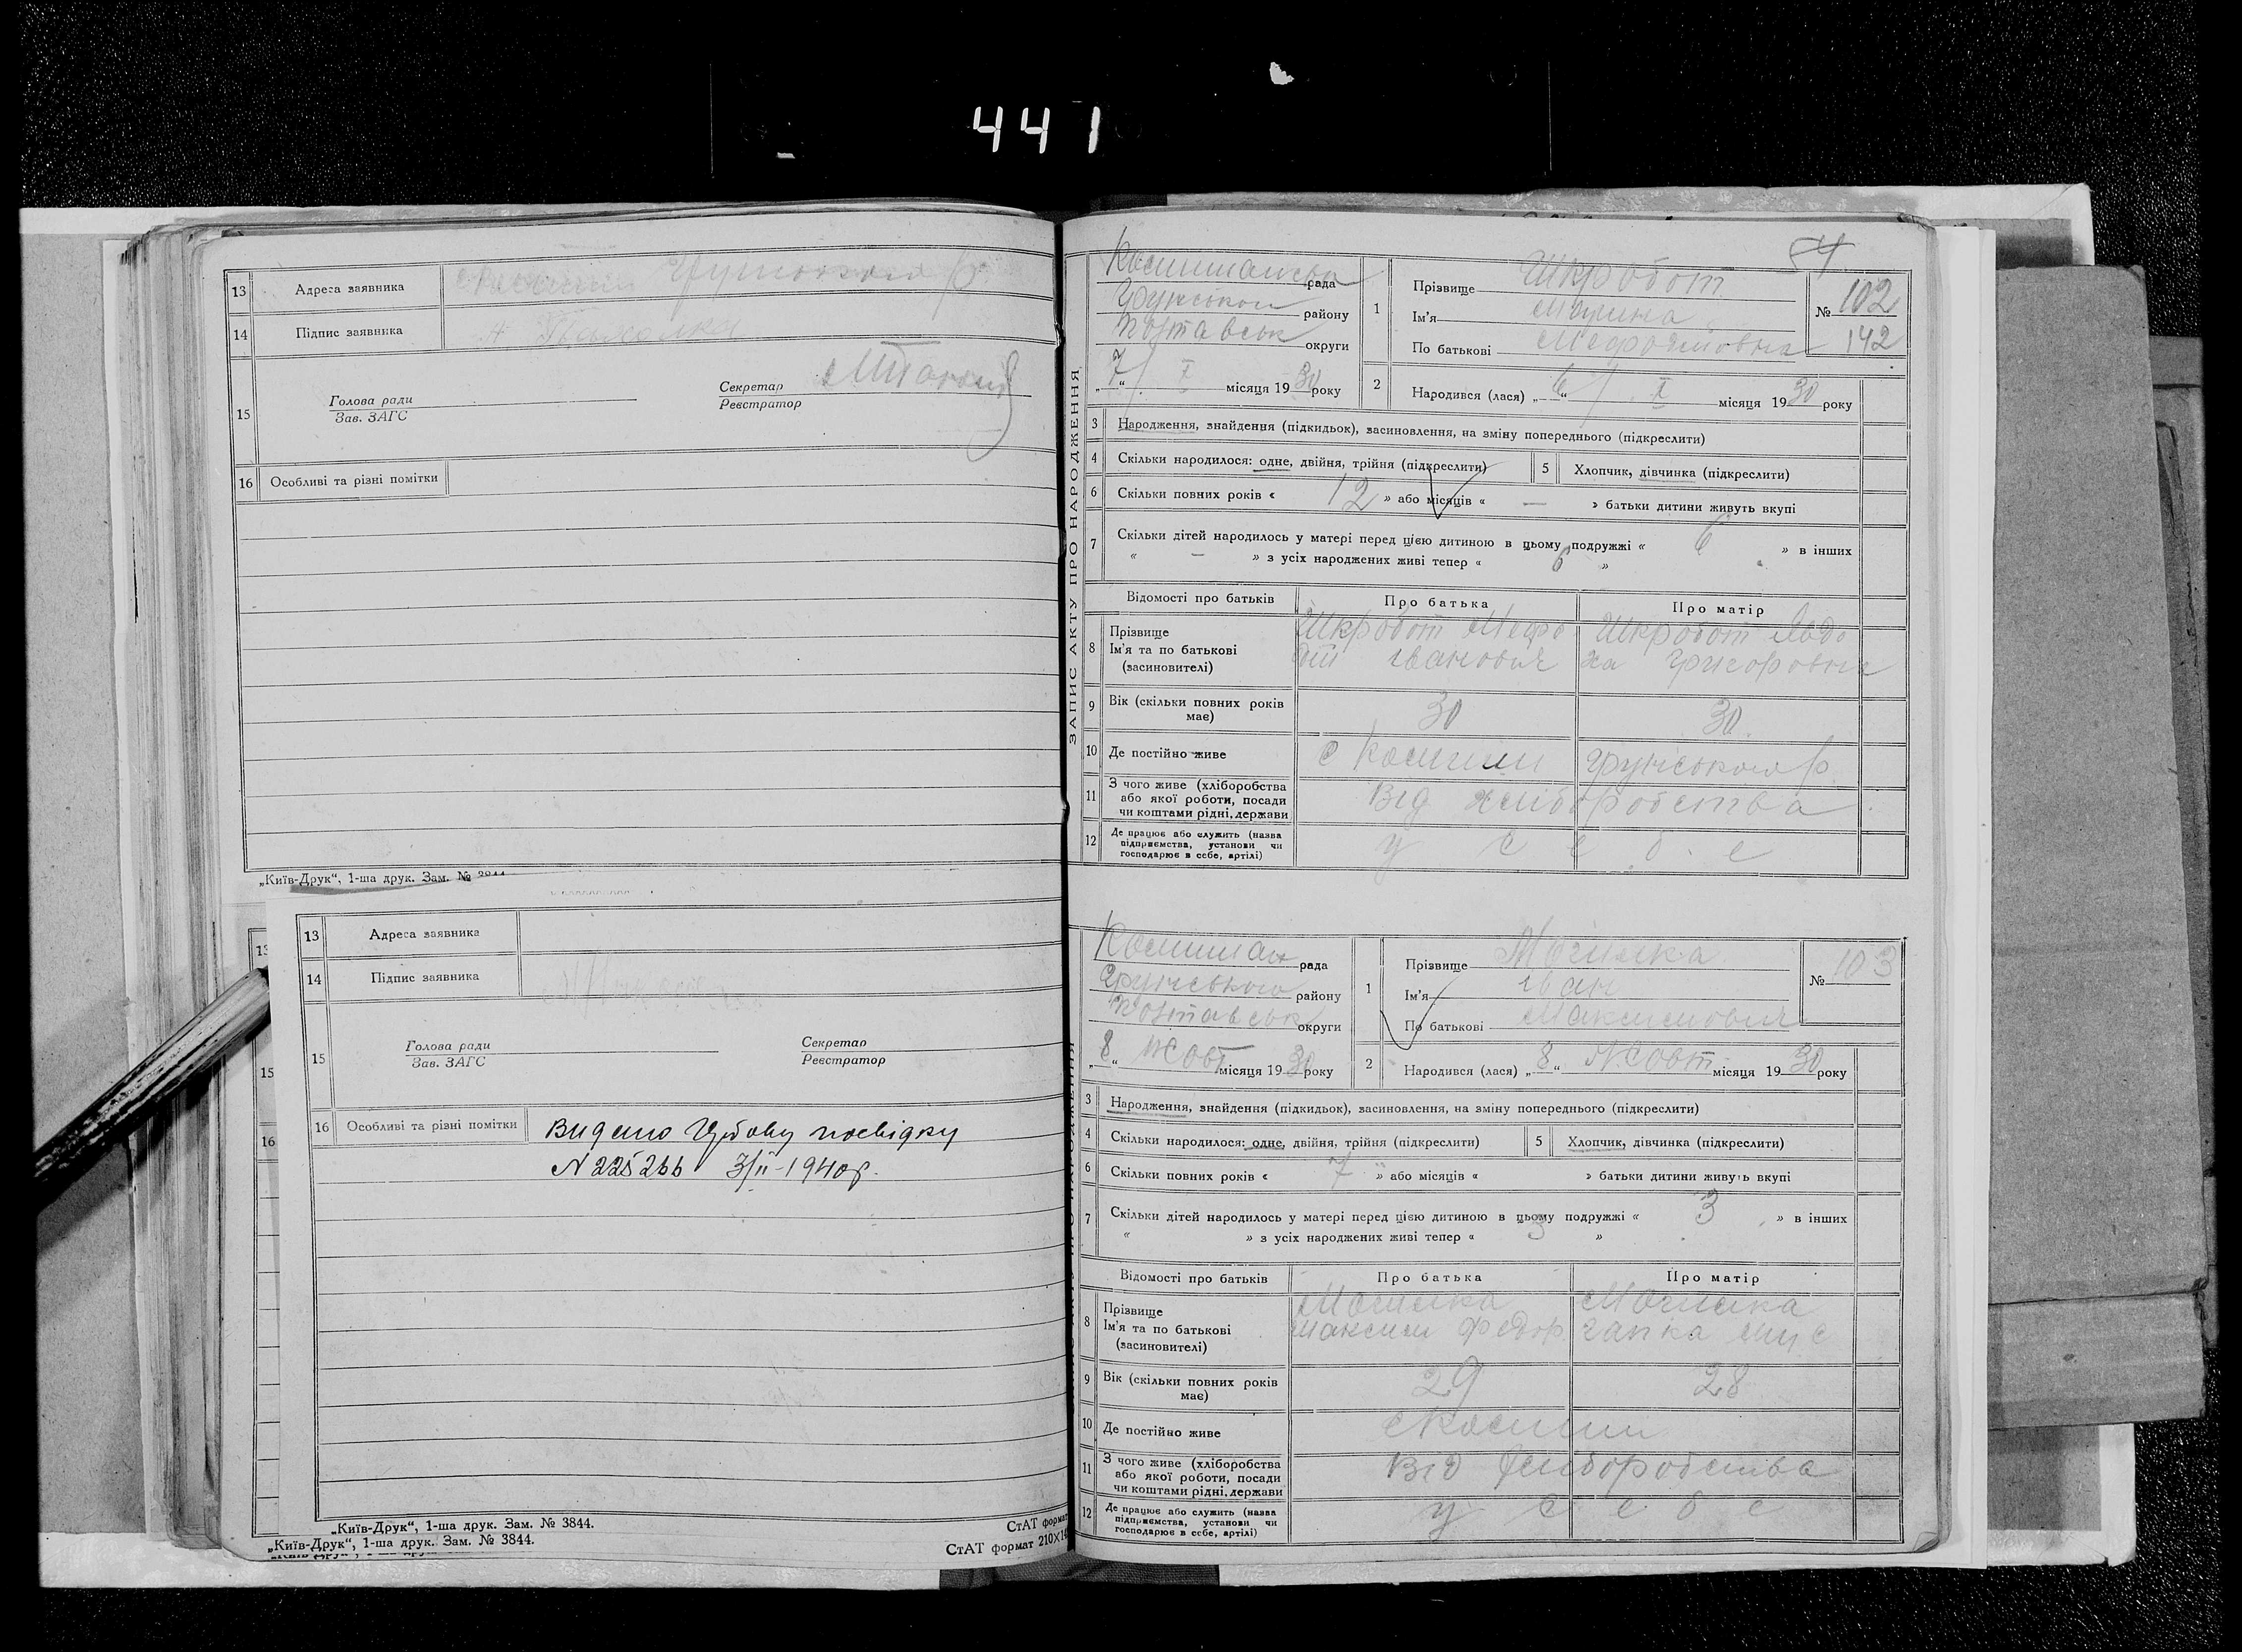 441
13 Адреса заявника
14 Підпис заявника
15 Голова ради
Зав. ЗАГС
Секретар
Реєстратор
16 Особливі та різні помітки
„Київ-Друк“, 1-ша друк. Зам. №
13 Адреса заявника
14 Підпис заявника
15 Голова ради
Зав. ЗАГС
Секретар
Реєстратор
16 Особливі та різні помітки Видано посвідку
N 225266 3/II-1940р.
„Київ-Друк“, 1-ша друк. Зам. № 3844.
СтАТ формат
„Київ-Друк“, 1-ша друк. Зам. № 3844.
СтАТ формат 210×14
13
15
16
ЗАПИС АКТУ ПРО НАРОДЖЕННЯ
рада
Грунського району
Полтавськ округи
„7“ X місяця 1930 року
1 Прізвище Шкробот
Ім'я Марина
По батькові Мефодіївна
№ 102
142
2 Народився (лася) „6“ X місяця 1930 року
3 Народження, знайдення (підкидьок), засиновлення, на зміну попереднього (підкреслити)
4 Скільки народилося: одне, двійня, трійня (підкреслити) 5 Хлопчик, дівчинка (підкреслити)
6 Скільки повних років « 12 » або місяців « — » батьки дитини живуть вкупі
7 Скільки дітей народилось у матері перед цією дитиною в цьому подружжі « 6 » в інших
« – » з усіх народжених живі тепер « 6 »
Відомості про батьків Про батька Про матір
8 Прізвище
Ім'я та по батькові
(засиновителі)
Шкробот Мефо
дій Іванович
Шкробот Явдо
ха Григоровна
9 Вік (скільки повних років має) 30 30
10 Де постійно живе с Косички Грунського р.
11 З чого живе (хліборобства
або якої роботи, посади
чи коштами рідні, держави
Від хліборобства
12 Де працює або служить (назва
підприємства, установи чи
господарює в себе, артілі)
у себе
рада
Грунського району
Полтавськ округи
„8“ жовт місяця 1930 року
1 Прізвище Могилка
Ім'я Іван
По батькові Максимович
№ 103
2 Народився (лася) „8“ жовт місяця 1930 року
3 Народження, знайдення (підкидьок), засиновлення, на зміну попереднього (підкреслити)
4 Скільки народилося: одне, двійня, трійня (підкреслити) 5 Хлопчик, дівчинка (підкреслити)
6 Скільки повних років « 7 » або місяців « » батьки дитини живуть вкупі
7 Скільки дітей народилось у матері перед цією дитиною в цьому подружжі « 3 » в інших
« » з усіх народжених живі тепер « 3 »
Відомості про батьків Про батька Про матір
8 Прізвище
Ім'я та по батькові
(засиновителі)
Могилка
Максим Федор.
Могилка
9 Вік (скільки повних років має) 29 28
10 Де постійно живе
11 З чого живе (хліборобства
або якої роботи, посади
чи коштами рідні, держави
Від хліборобства
12 Де працює або служить (назва
підприємства, установи чи
господарює в себе, артілі)
у себе